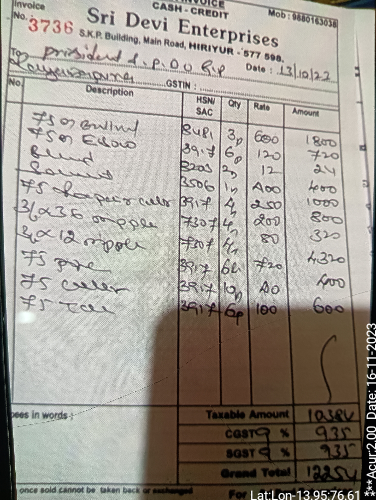 Invoice
No. : 3736
INVOICE
CASH - CREDIT
Mob : 9880163038
Sri Devi Enterprises
S.K.P. Building, Main Road, HIRIYUR - 577 598.
To president
Date : 13/10/22
GSTIN :
No Description HSN/SAC Qty Rate Amount
75 8481 3p 600 1800
75 3917 6p 120 720
12 24
3506 1n 400 400
75 3917 4 250 1000
nipple 7307 4n 200 800
12 nipple 7307 4n 80 320
75 pipe 3917 6l 720 4320
75 3917 10n 40 400
75 Tee 3917 6p 100 600
ees in words :
Taxable Amount 10384
CGST 9 % 935
SGST 9 % 935
Grand Total 12254
once sold cannot be taken back or exchanged
For
Lat:Lon-13.95:76.61
***Acur:2.00 Date: 16-11-2023